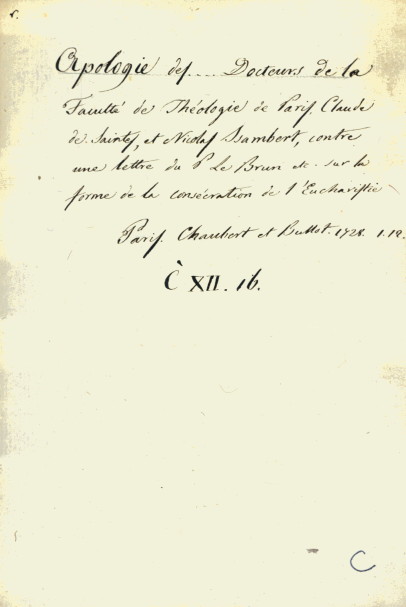 Apologie des.... Docteurs de la
Faculté de Théologie de Paris. Claude
de Saintes, et Nicolas Isambert, contre
une lettre du P Le Brun etc. sur la
forme de la consécration de l'Eucharistie
Paris. Chaubert et Bullot. 1728. 1.12.
C XII. 16.
C